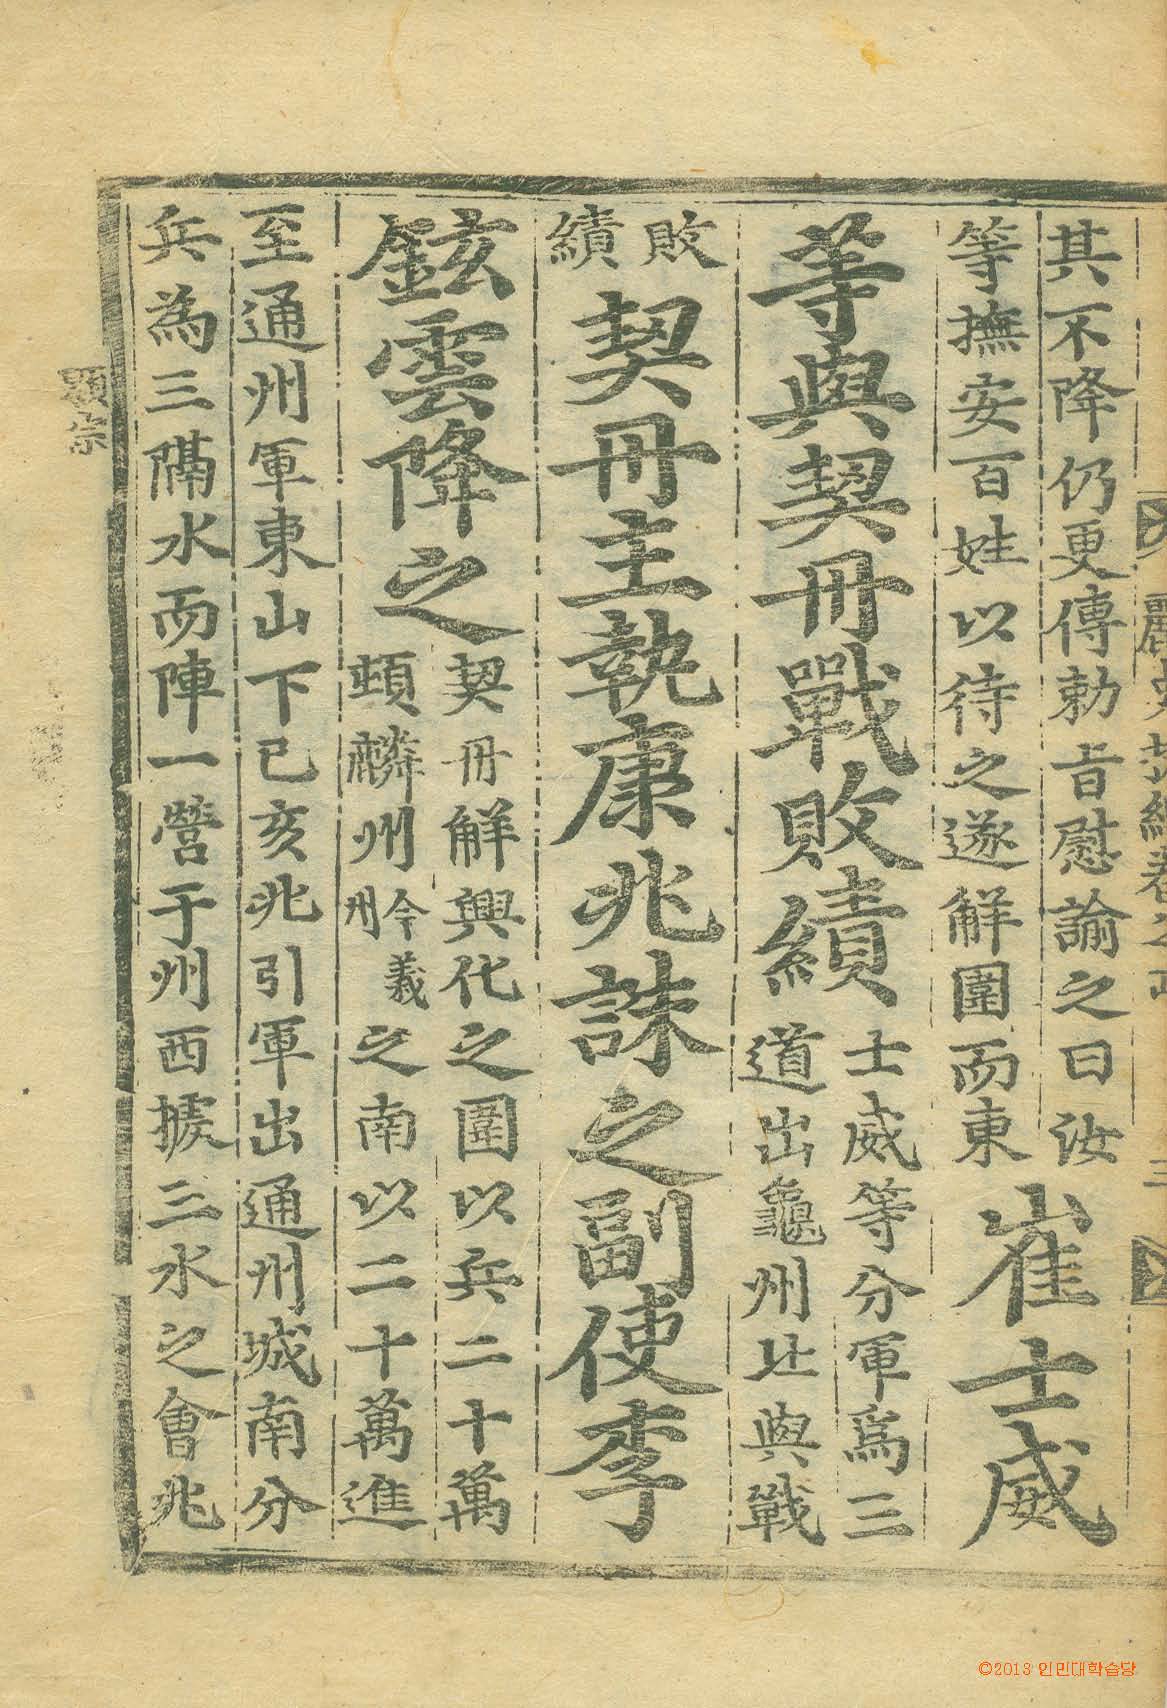 其不降仍更傳勅旨慰諭之曰汝
等撫安百姓以待之遂解圍而東
崔士威
等與契丹戰敗績
士威等分軍爲三
道出龜州北與戰
敗
績
契丹主執康兆誅之副使李
鉉雲降之
契丹解興化之圍以兵二十萬
頓麟州今義州之南以二十萬進
至通州軍東山下己亥兆引軍出通州城南分
兵為三隔水而陣一營于州西據三水之會兆
顯宗
©2013 인민대학습당